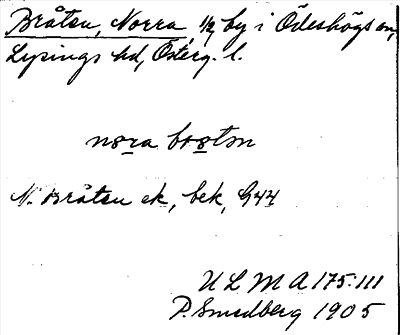 Bråten, Norra, 1/2 by i Ödeshögs sn,
Lysings hd, Österg. l.
nora broten
N. Bråten ek, bek, G44
ULMA 175:111
P. Smedberg 1905